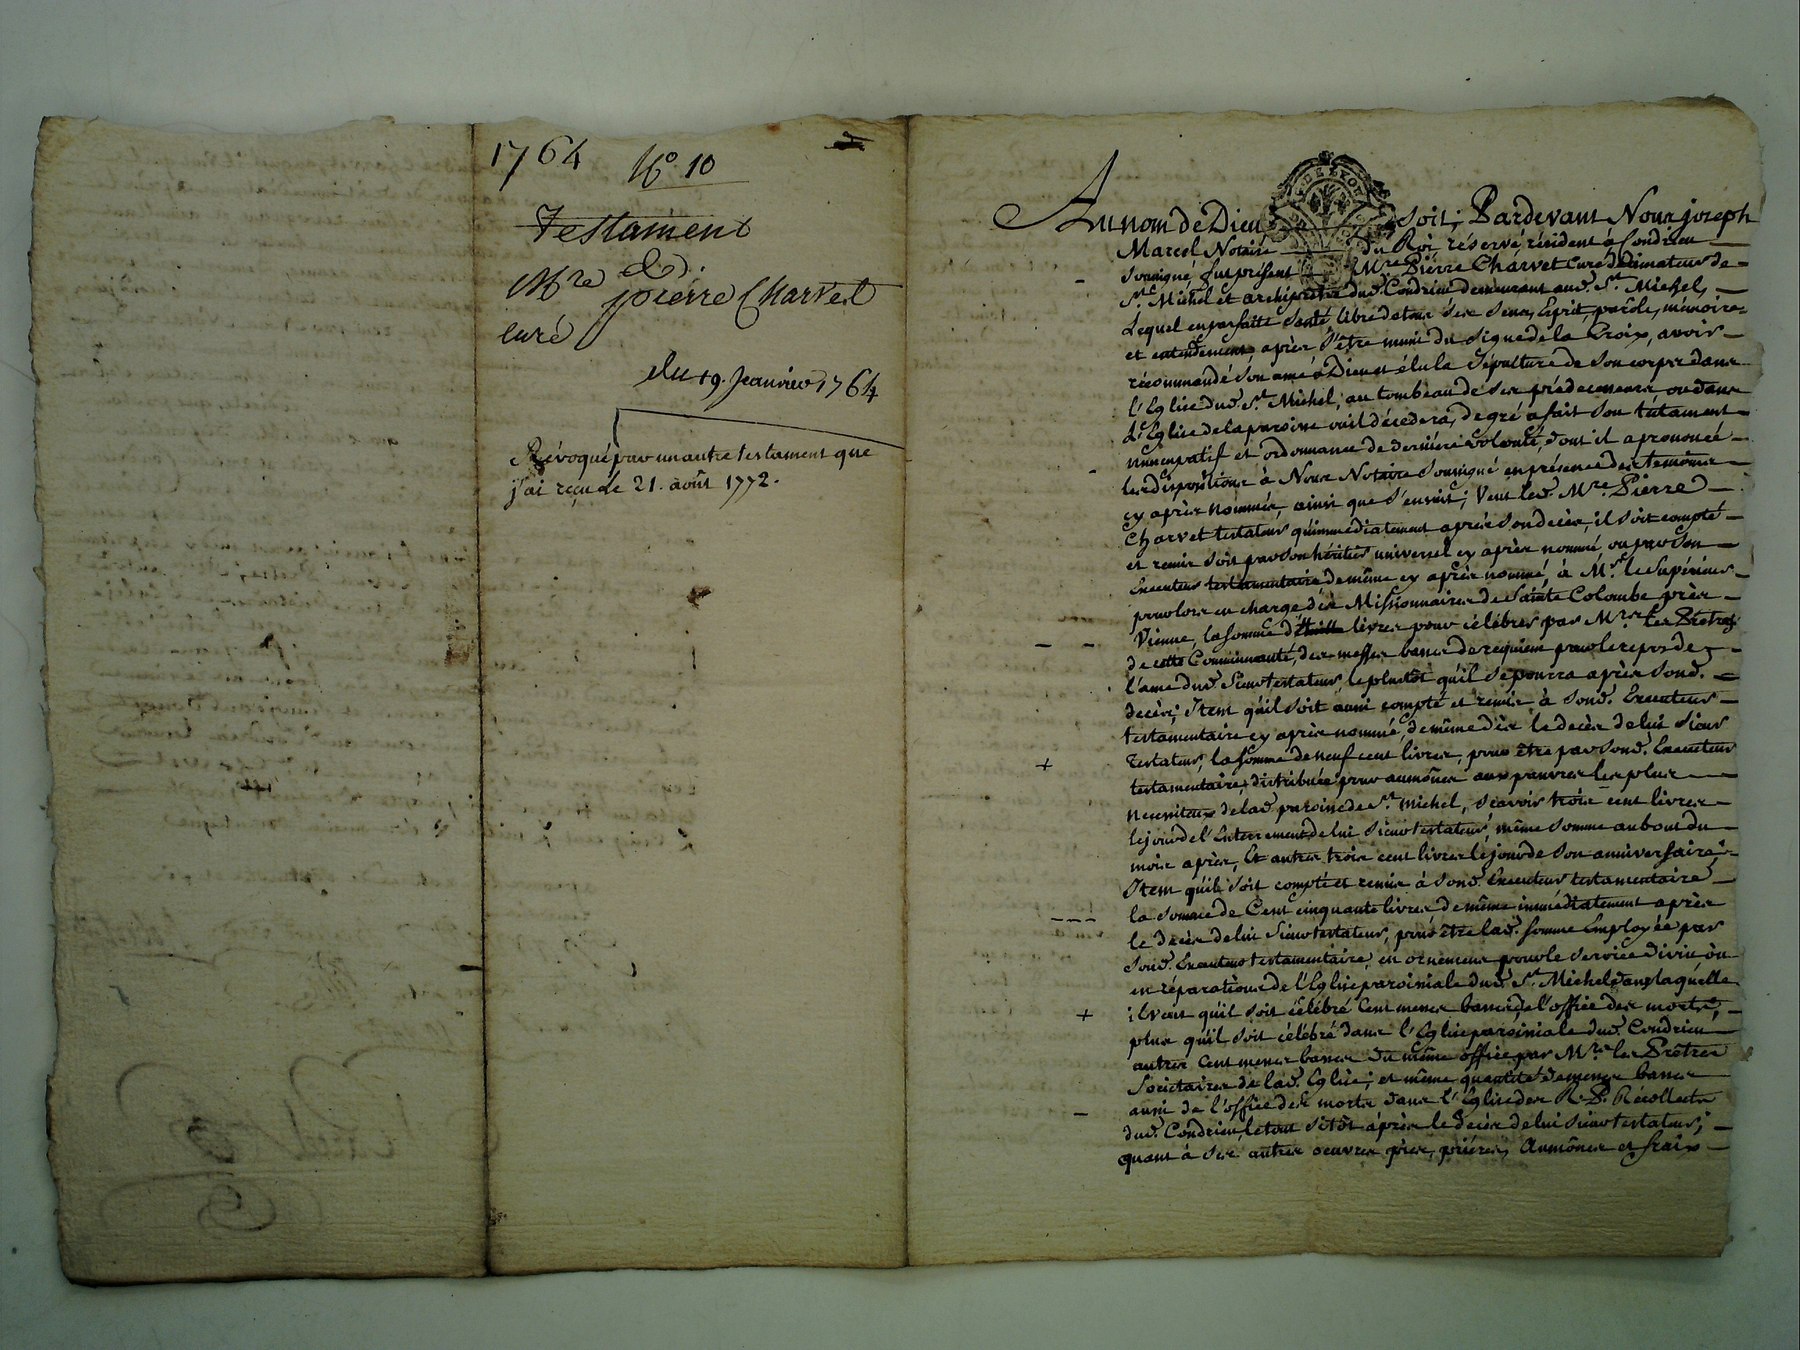 1764
No 10
Testament
de
Mre pierre Charvet
curé
du 19. Jeanvier 1764
Révoqué par un autre testament que
j'ai reçu le 21. août 1772.
Au nom de Dieu soit; Pardevant Nous joseph
Marcel Notaire du Roi réservé résident à Condrieu
soussigné, fut présent Mre Pierre Charvet Curé Décimateur de
St. Michel et archiprêtre dud. Condrieu demeurant aud. St. Michel,
Lequel en parfaite santé, libre de tous ses sens, Esprit, parôle, mémoire
et entendement, après s'être muni du signe de la Croix, avoir
récommandé son ame à Dieu et élu la sépulture de son corps dans
l'Eglise dud. St. Michel, au tombeau de ses prédecesseurs, ou dans
L'Eglise de la paroisse où il décedera, de gré a fait son testament
nuncupatif et ordonnance de derniére volonté, dont il a prononcé
les dispositions à Nous Notaire soussigné en présence des temoins
cy après nommés, ainsi que s'ensuit; Veut led. Mre. Pierre
Charvet testateur qu'immédiatement après son decès, il soit compté
et remis soit par son héritier universel cy après nommé, ou par son
Executeur testamentaire de même cy après nommé, à Mr. le Supérieur
pour lors en charge des Missionnaires de Sainte Colombe près
Vienne, la somme de livres pour célébrer par Mrs. les Prêtres
de cette Communauté, des messes basses de requiem pour le repos de
l'ame dud. Sieur testateur, le plustôt qu'il se pourra après sond.
decès; Item qu'il soit aussi compté et remis à sond. Executeur
testamentaire cy après nommé, de même dès le decès de lui Sieur
testateur, la somme de neuf cent livres, pour être par sond. Executeur
testamentaire, distribuée pour aumônes aux pauvres les plus
necessiteux de lad. paroisse de St. Michel, scavoir trois cent livres
le jour de l'Enterrement de lui Sieur testateur, même somme au bout du
mois après, Et autres trois cent livres le jour de son anniversaire;
Item qu'il soit compté et remis à sond. Executeur testamentaire
la somme de Cent cinquante livres de même immédiatement après
le decès de lui Sieur testateur, pour être lad. somme Employée par
sond. Executeur testamentaire, en ornemens pour le service divin ou
en réparations de l'Eglise paroissiale dud. St. Michel dans laquelle
il veut qu'il soit célébré Cent messes basses de l'office des morts,
plus qu'il soit célébré dans l'Eglise paroissiale dud. Condrieu
autres Cent messes basses du même office par Mrs. les Prêtres
Societaires de lad. Eglise; et même quantité de messes basses
aussi de l'office des morts dans l'Eglise des R. P. Récollects
dud. Condrieu, le tout sitôt après le decès de lui Sieur testateur;
quant à ses autres oeuvres pies, priéres, Aumônes et fraix